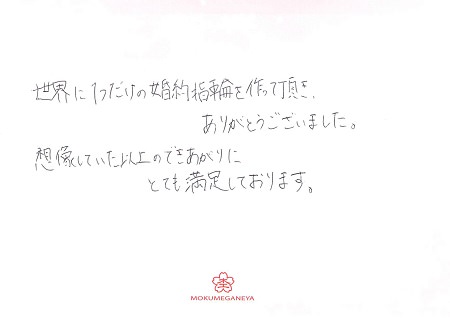 世界に1つだけの婚約指輪を作って頂き、
ありがとうございました。
想像していた以上のできあがりに
とても満足しております。
MOKUMEGANEYA